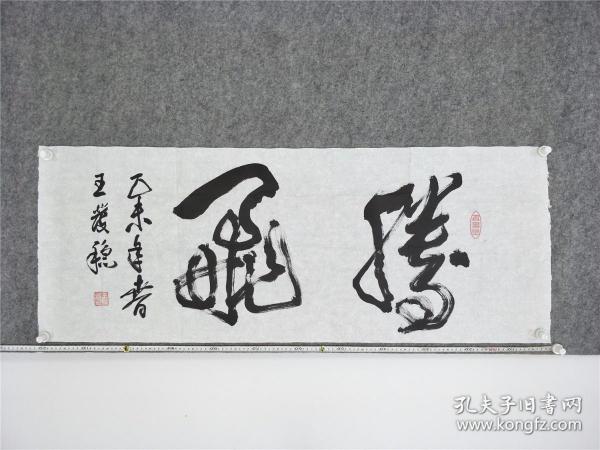 腾飞
乙未年春
王发稳
孔夫子旧书网
www.kongfz.com